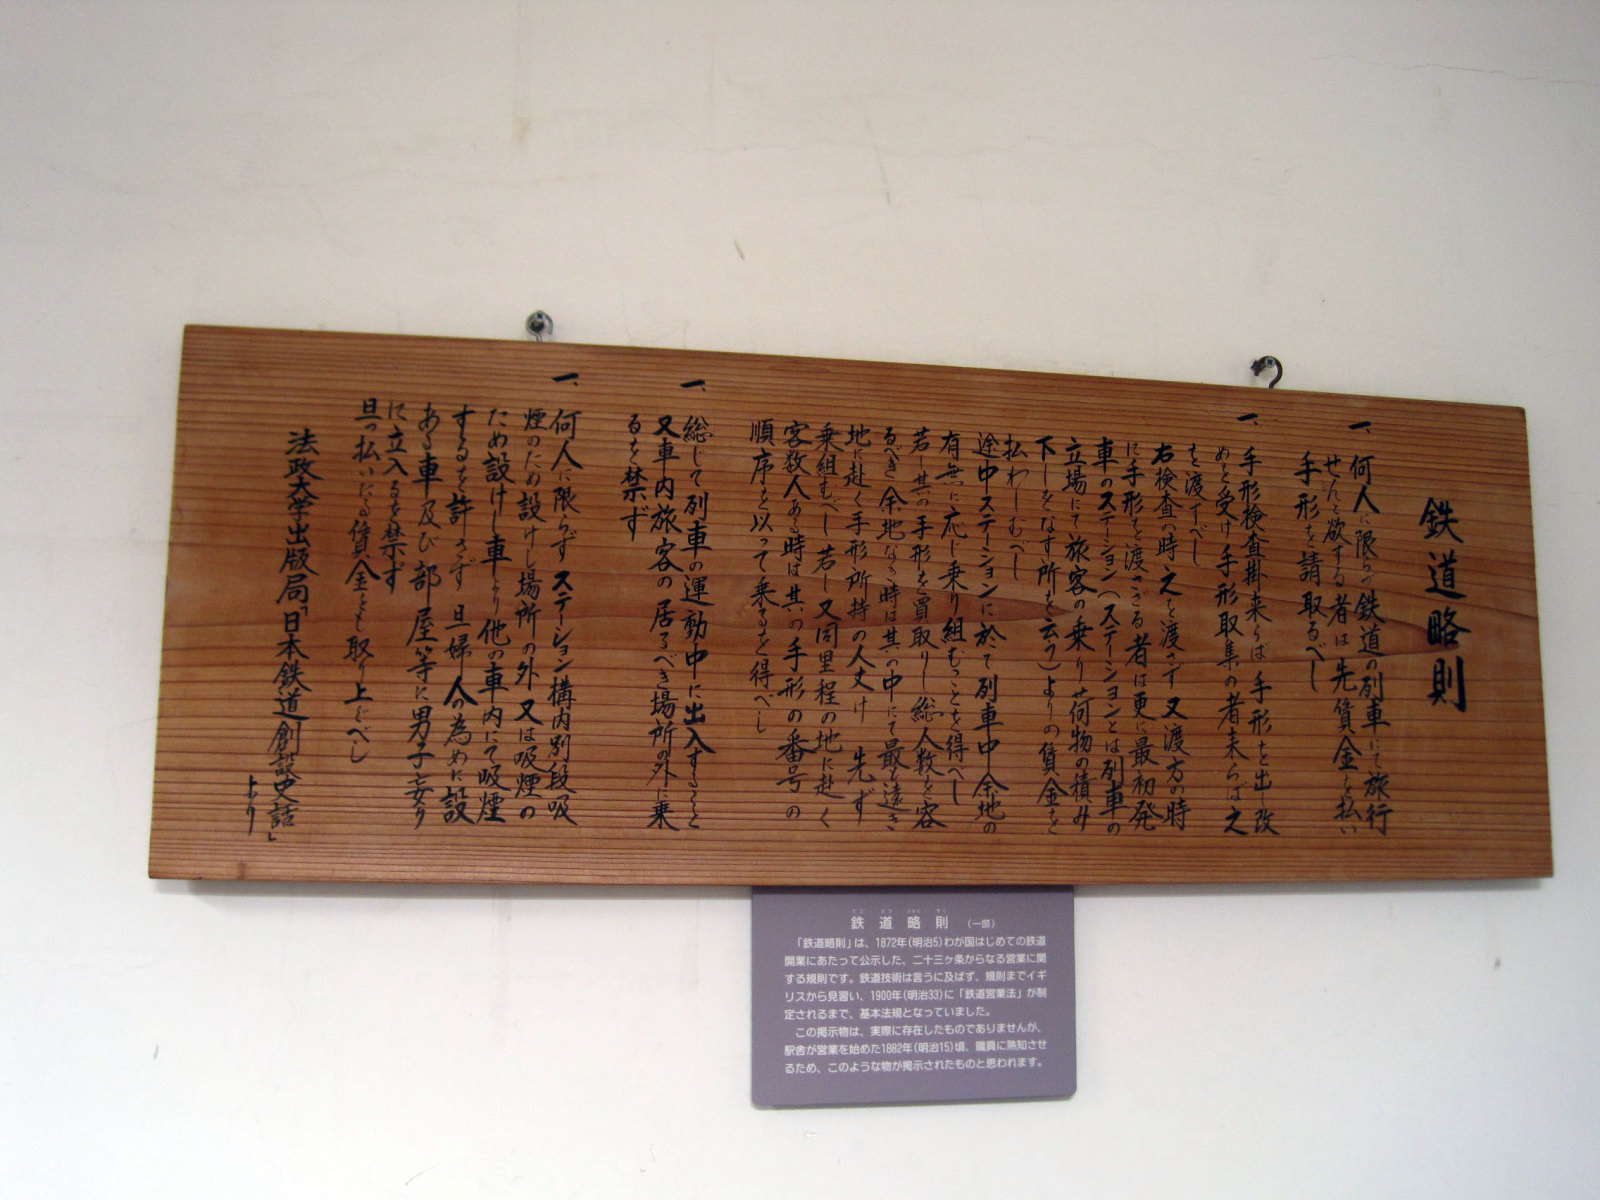 鉄道略則
一、何人に限らず鉄道の列車にて旅行
せんと欲する者は先賃金を払い
手形を請取るべし
一、手形検査掛来らば手形を出し改
めを受け手形取集の者来らば之
を渡すべし
右検査の時之を渡さず又渡方の時
に手形を渡さざる者は更に最初発
車のステーション(ステーションとは列車の
立場にて旅客の乗り荷物の積み
下しをなす所を云う)よりの賃金を
払わしむべし
途中ステーションに於て列車中余地の
有無に応じ乗り組むことを得べし
若し其の手形を買取りし総人数を容
るべき余地なき時は其の中にて最も遠き
地に赴く手形所持の人丈け先ず
乗組むべし若し又同里程の地に赴く
客数人ある時は其の手形の番号の
順序を以って乗るを得べし
一、総じて列車の運動中に出入すること
又車内旅客の居るべき場所の外に乗
るを禁ず
一、何人に限らずステーション構内別段吸
煙のため設けし場所の外又は吸煙の
ため設けし車より他の車内にて吸煙
するを許さず且婦人の為めに設
ある車及び部屋等に男子妄り
に立入るを禁ず
且つ払いたる賃金をも取り上ぐべし
法政大学出版局「日本鉄道創設史話」
より
鉄道略則(一部)
「鉄道略則」は、1872年(明治5)わが国はじめての鉄道
開業にあたって公示した、二十三ヶ条からなる営業に関
する規則です。鉄道技術は言うに及ばず、規則までイギ
リスから見習い、1900年(明治33)に「鉄道営業法」が制
定されるまで、基本法規となっていました。
この掲示物は、実際に存在したものでありませんが、
駅舎が営業を始めた1882年(明治15)頃、職員に熟知させ
るため、このような物が掲示されたものと思われます。